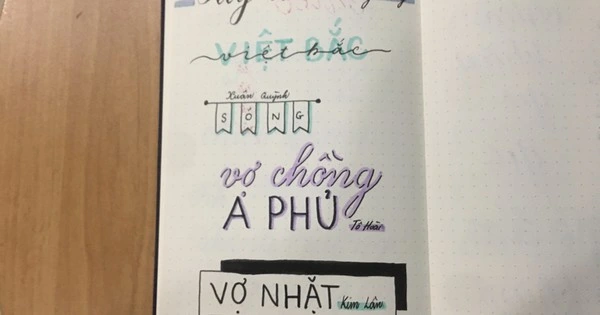 VIỆT BẮC
việt bắc
Xuân Quỳnh
SÓNG
vợ chồng
A PHỦ
Tô Hoài
VỢ NHẶT Kim Lân